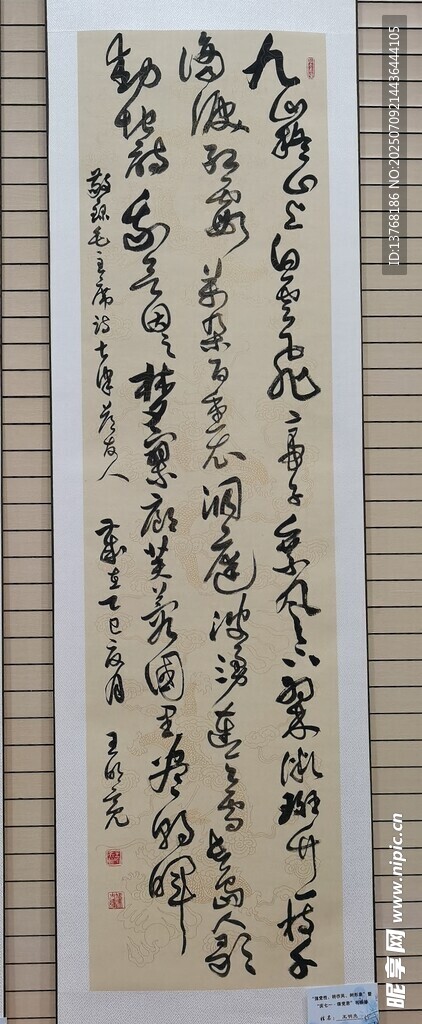 九嶷山上白雲飛帝子乘風下翠微斑竹一枝千
滴淚紅霞萬朵百重衣洞庭波湧連天雪長島人歌
動地詩我欲因之夢寥廓芙蓉國里盡朝暉
敬録毛主席詩七律答友人 歲在乙巳夏月 王明亮
姓名：王明亮
ID:13768186 NO:20250709214436444105
昵享网 www.nipic.cn